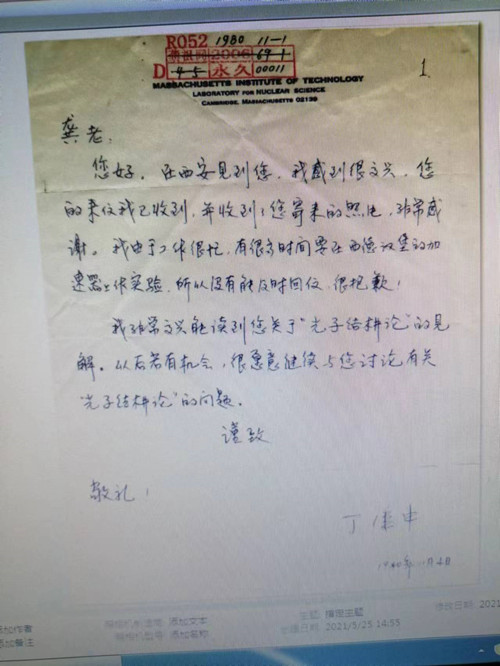 R052 1980 11-1
2006 69-1
D 4-5 永久 00011
MASSACHUSETTS INSTITUTE OF TECHNOLOGY
LABORATORY FOR NUCLEAR SCIENCE
CAMBRIDGE, MASSACHUSETTS 02139
1.
龚老:
您好。在西安见到您,我感到很高兴,您
的来信我已收到,并收到了您寄来的照片,非常感
谢。我由于工作很忙,有很多时间要在西德汉堡的加
速器上作实验,所以没有能及时回信,很抱歉!
我非常高兴能读到您关于“光子结构论”的见
解。以后若有机会,很愿意继续与您讨论有关
“光子结构论”的问题。
谨致
敬礼!
丁
1980年11月4日
添加作者
照相机制造商 添加文本
主题 指定主题
修改日期 2021/
添加备注
照相机型号 添加名称
创建日期 2021/5/25 14:55